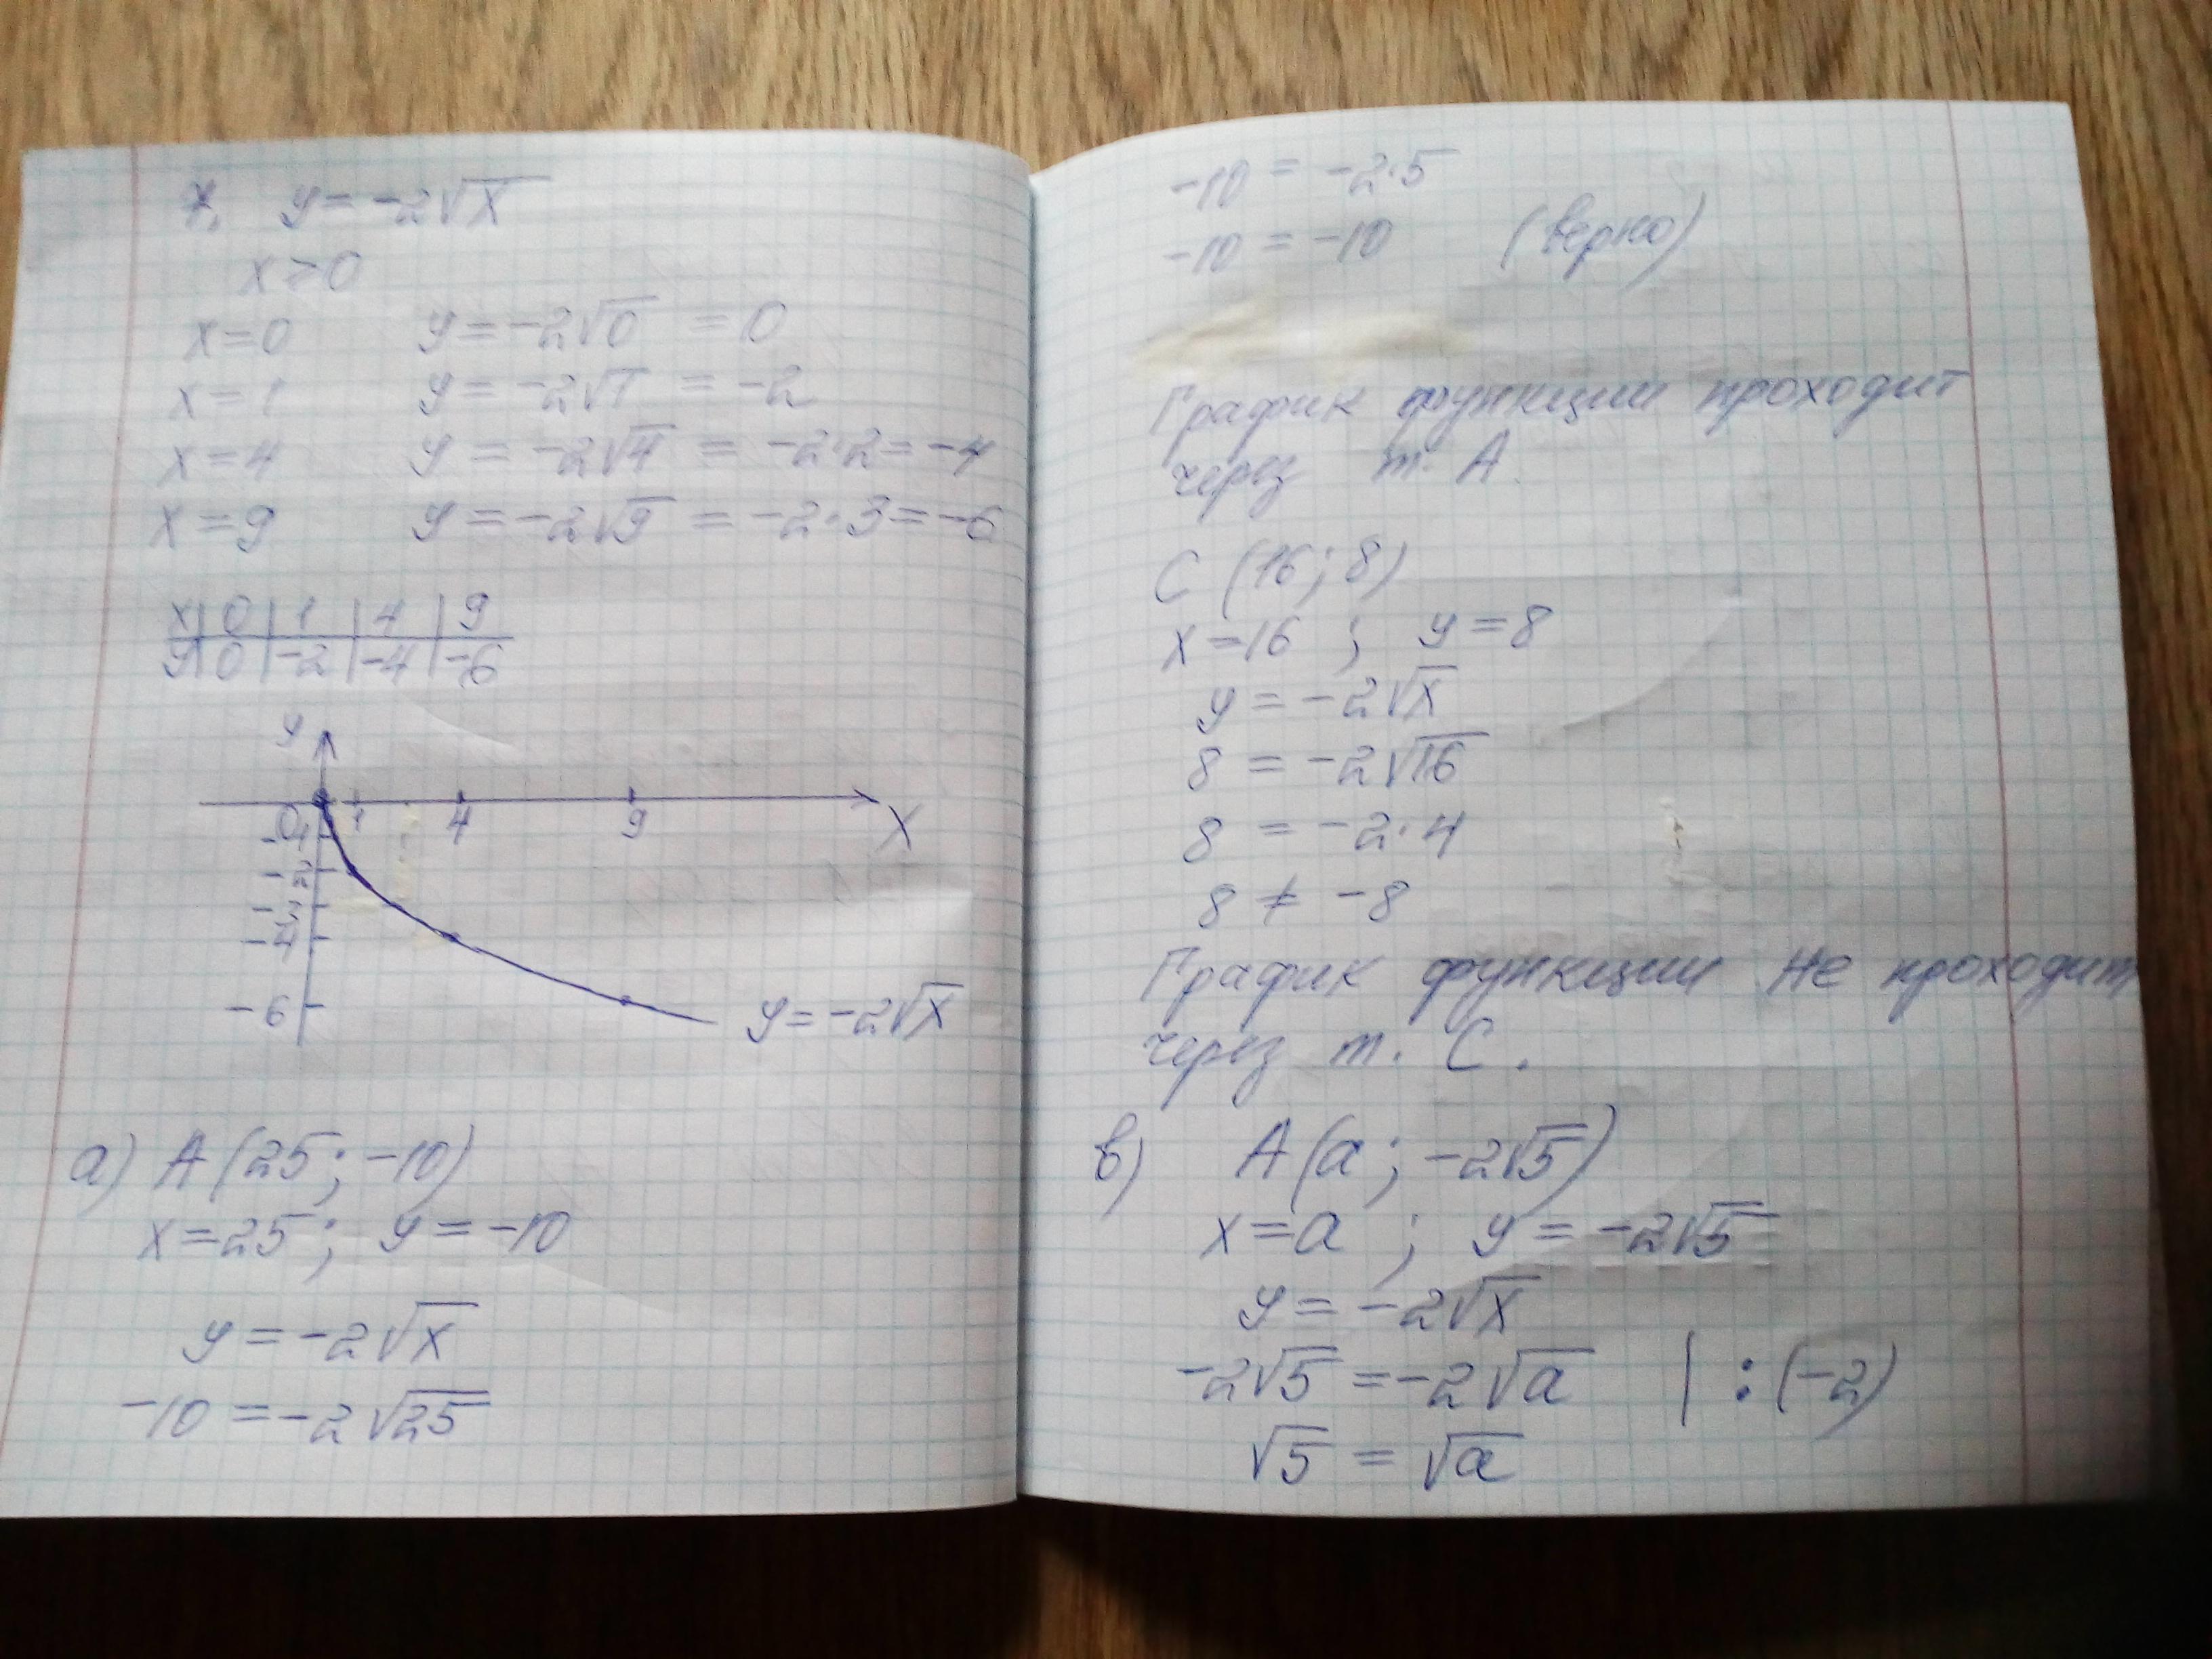 7. y = -2√x
x ≥ 0
x = 0 y = -2√0 = 0
x = 1 y = -2√1 = -2
x = 4 y = -2√4 = -2·2 = -4
x = 9 y = -2√9 = -2·3 = -6
x | 0 | 1 | 4 | 9
y | 0 | -2 | -4 | -6
y
0 1 4 9 X
-1
-2
-3
-4
-6 y = -2√x
а) A (25; -10)
x = 25; y = -10
y = -2√x
-10 = -2√25
-10 = -2·5
-10 = -10 (верно)
График функции проходит
через т. A.
C (16; 8)
x = 16 ; y = 8
y = -2√x
8 = -2√16
8 = -2·4
8 ≠ -8
График функции не проходит
через т. C.
в) A (a; -2√5)
x = a ; y = -2√5
y = -2√x
-2√5 = -2√a | : (-2)
√5 = √a